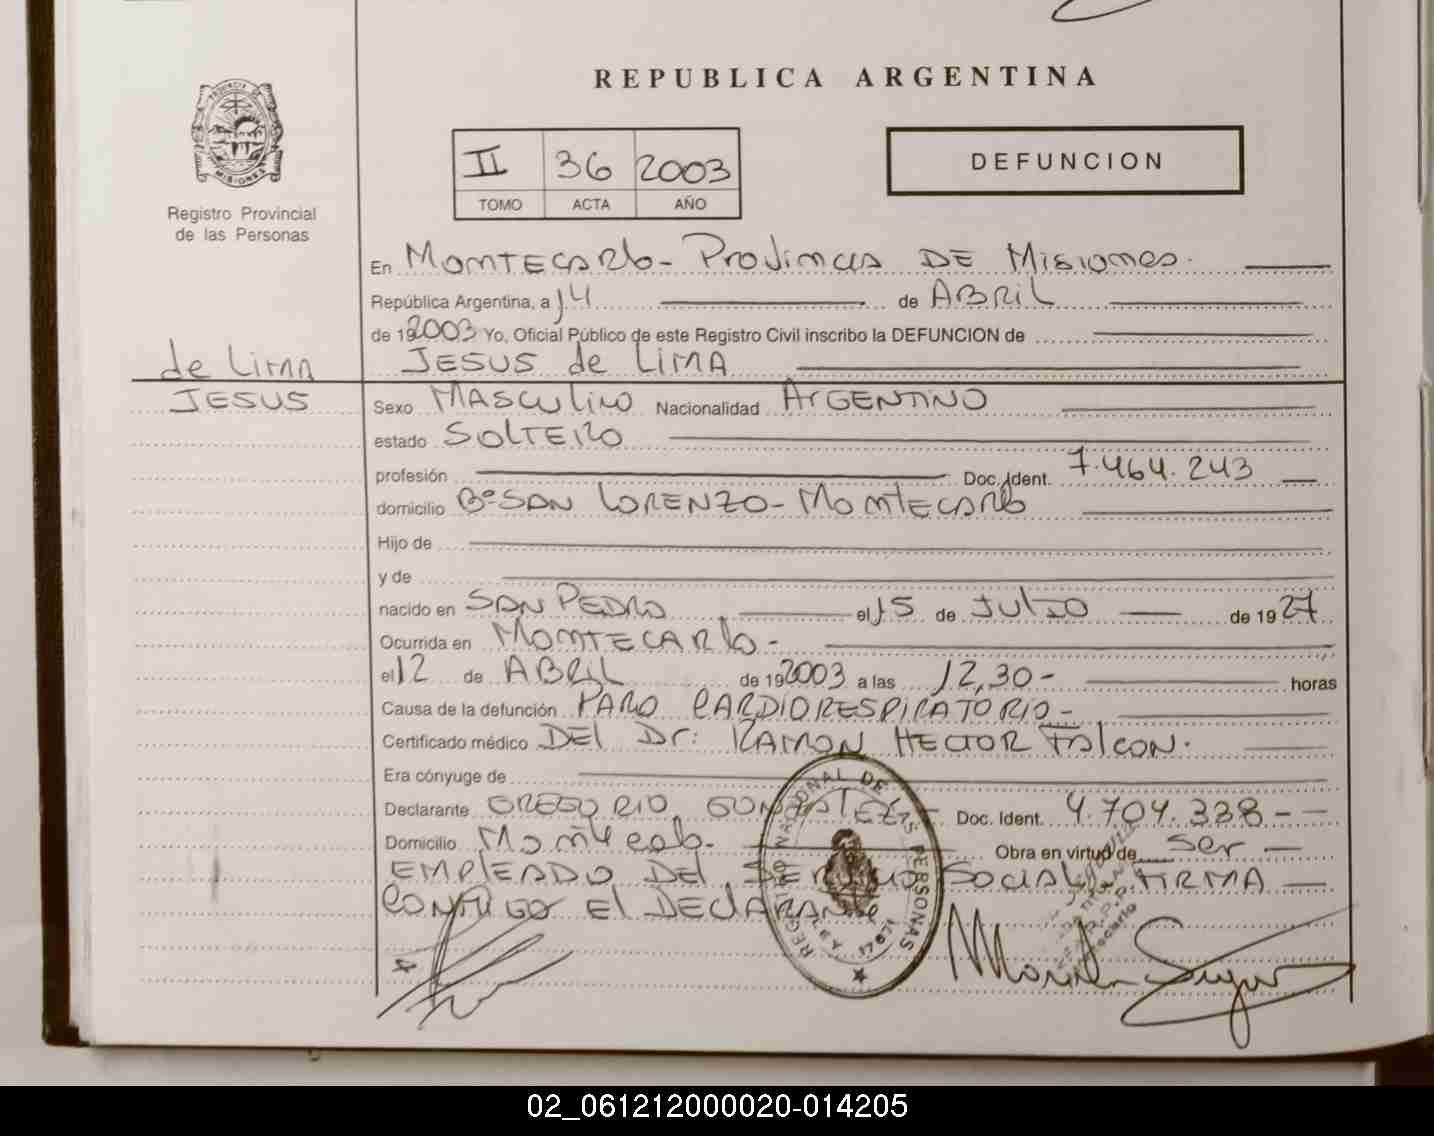 REPUBLICA ARGENTINA
PROVINCIA DE
MISIONES
Registro Provincial
de las Personas
II 36 2003
TOMO ACTA AÑO
DEFUNCION
En Montecarlo - Provincia DE Misiones.
República Argentina, a 14 de ABRIL
de 192003 Yo, Oficial Público de este Registro Civil inscribo la DEFUNCION de
JESUS de LIMA
de LIMA
JESUS
Sexo MASCULINO Nacionalidad ARGENTINO
estado SOLTERO
profesión Doc. Ident. 7.464.243
domicilio Bº SAN LORENZO - MONTECARLO
Hijo de
y de
nacido en SAN PEDRO el 15 de JULIO de 1927
Ocurrida en MONTECARLO -
el 12 de ABRIL de 192003 a las 12,30 - horas
Causa de la defunción PARO CARDIORESPIRATORIO -
Certificado médico DEL Dr: RAMON HECTOR FALCON.
Era cónyuge de
Declarante GREGORIO GONZALEZ - Doc. Ident. 4.704.338 -
Domicilio Montecarlo. Obra en virtud de Ser
EMPLEADO DEL SERVICIO SOCIAL, FIRMA
CONMIGO El DECLARANTE
REGISTRO NACIONAL DE LAS PERSONAS
LEY 17671
02_061212000020-014205